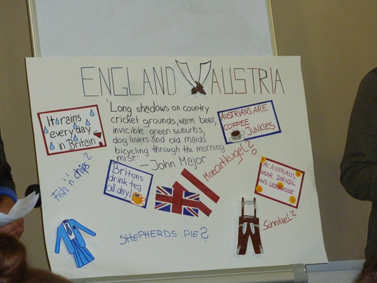 ENGLAND AUSTRIA
It rains
every day
in
Britain
'Long shadows on country
cricket grounds, warm beer,
invicible green suburbs,
dog lovers and old maids
bicycling through the morning
mist'
- John Major
AUSTRIANS ARE
COFFEE
JUNKIES
Fish n' chips?
Britons
drink tea
all day!
Mozartkugel?
ALL AUSTRIANS
WEAR DIRNDL
AND LEDERHOSE
SHEPHERDS PIE?
Schnitzel?